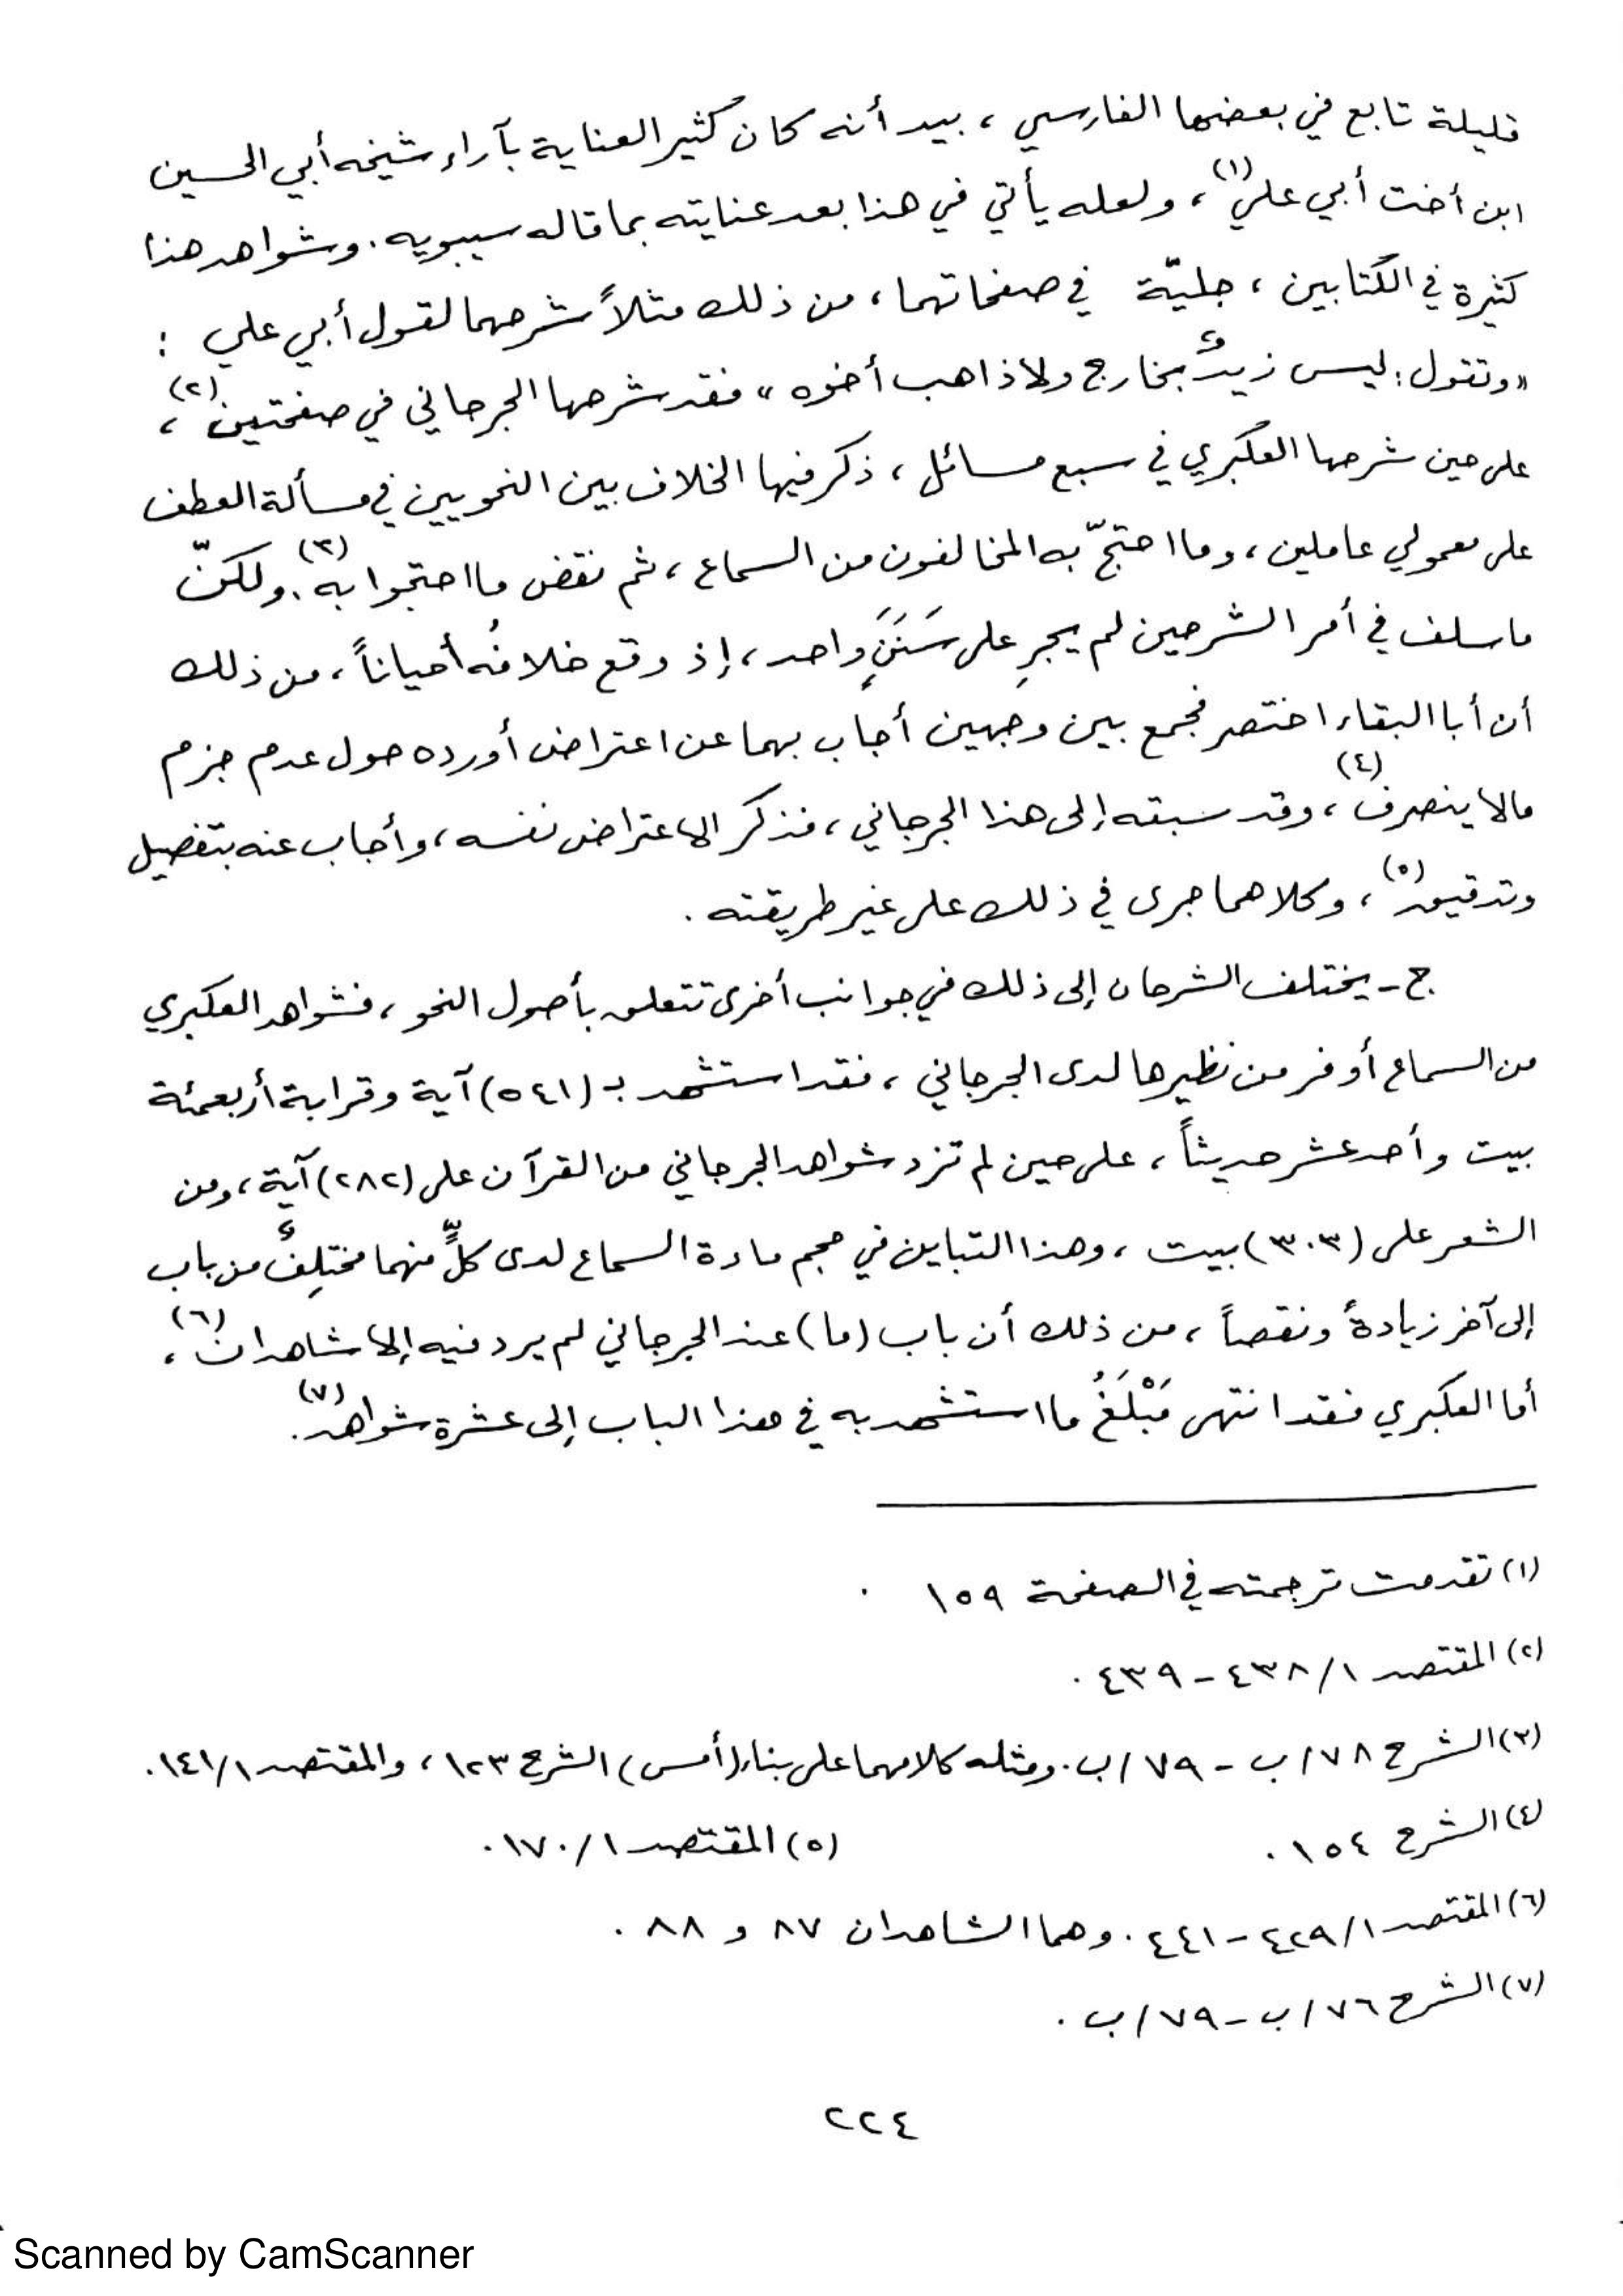 قليلة تابع في بعضها الفارسي ، بيد أنه كان كثير العناية بآراء شيخه أبي الحسين
ابن أخت أبي علي(١)، ولعله يأتي في هذا بعد عنايته بما قاله سيبويه. وشواهد هذا
كثيرة في الكتابين ، جليّة في صفحاتهما ، من ذلك مثلاً شرحهما لقول أبي علي :
« وتقول : ليس زيدٌ بخارج ولا ذاهب أخوه » فقد شرحها الجرجاني في صفحتين(٢)،
على حين شرحها العكبري في سبع مسائل ، ذكر فيها الخلاف بين النحويين في مسألة العطف
على معمولي عاملين ، وما احتجّ به المخالفون من السماع ، ثم نقض ما احتجوا به(٣). ولكنّ
ما سلف في أمر الشرحين لم يجرِ على سَنَنٍ واحد ، إذ وقع خلافُه أحياناً ، من ذلك
أن أبا البقاء اختصر فجمع بين وجهين أجاب بهما عن اعتراض أورده حول عدم جزم
مالا ينصرف(٤)، وقد سبقه إلى هذا الجرجاني ، فذكر الاعتراض نفسه ، وأجاب عنه بتفصيل
وتدقيق(٥)، وكلاهما جرى في ذلك على غير طريقته .
ج - يختلف الشرحان إلى ذلك في جوانب أخرى تتعلق بأصول النحو ، فشواهد العكبري
من السماع أوفر من نظيرها لدى الجرجاني ، فقد استشهد بـ (٥٤١) آية وقرابة أربعمئة
بيت وأحد عشر حديثاً ، على حين لم تزد شواهد الجرجاني من القرآن على (٢٨٢) آية ، ومن
الشعر على (٣٠٣) بيت ، وهذا التباين في حجم مادة السماع لدى كلٍّ منهما مختلِفٌ من باب
إلى آخر زيادةً ونقصاً ، من ذلك أن باب (ما) عند الجرجاني لم يرد فيه إلا شاهدان(٦)،
أما العكبري فقد انتهى مَبْلَغُ ما استشهد به في هذا الباب إلى عشرة شواهد(٧).
(١) تقدمت ترجمته في الصفحة ١٥٩ .
(٢) المقتصد ١/ ٤٣٨ - ٤٣٩ .
(٣) الشرح ٧٨/ ب - ٧٩/ ب . ومثله كلامهما على بناء (أمس) الشرح ١٢٣ ، والمقتصد ١/ ١٤١ .
(٤) الشرح ١٥٤ . (٥) المقتصد ١/ ١٧٠ .
(٦) المقتصد ١/ ٤٢٩ - ٤٤١ . وهما الشاهدان ٨٧ و ٨٨ .
(٧) الشرح ٧٦/ ب - ٧٩/ ب .
٢٢٤
Scanned by CamScanner